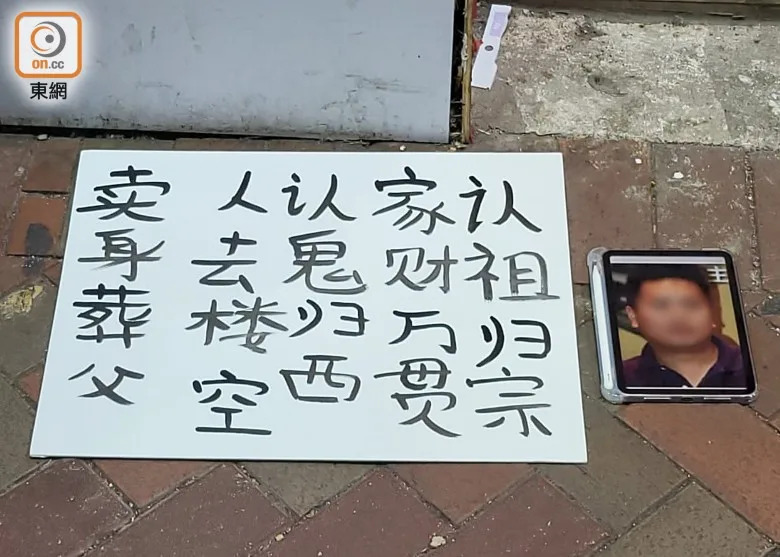 认祖归宗
家财万贯
认鬼归西
人去楼空
卖身葬父
on.cc
東網